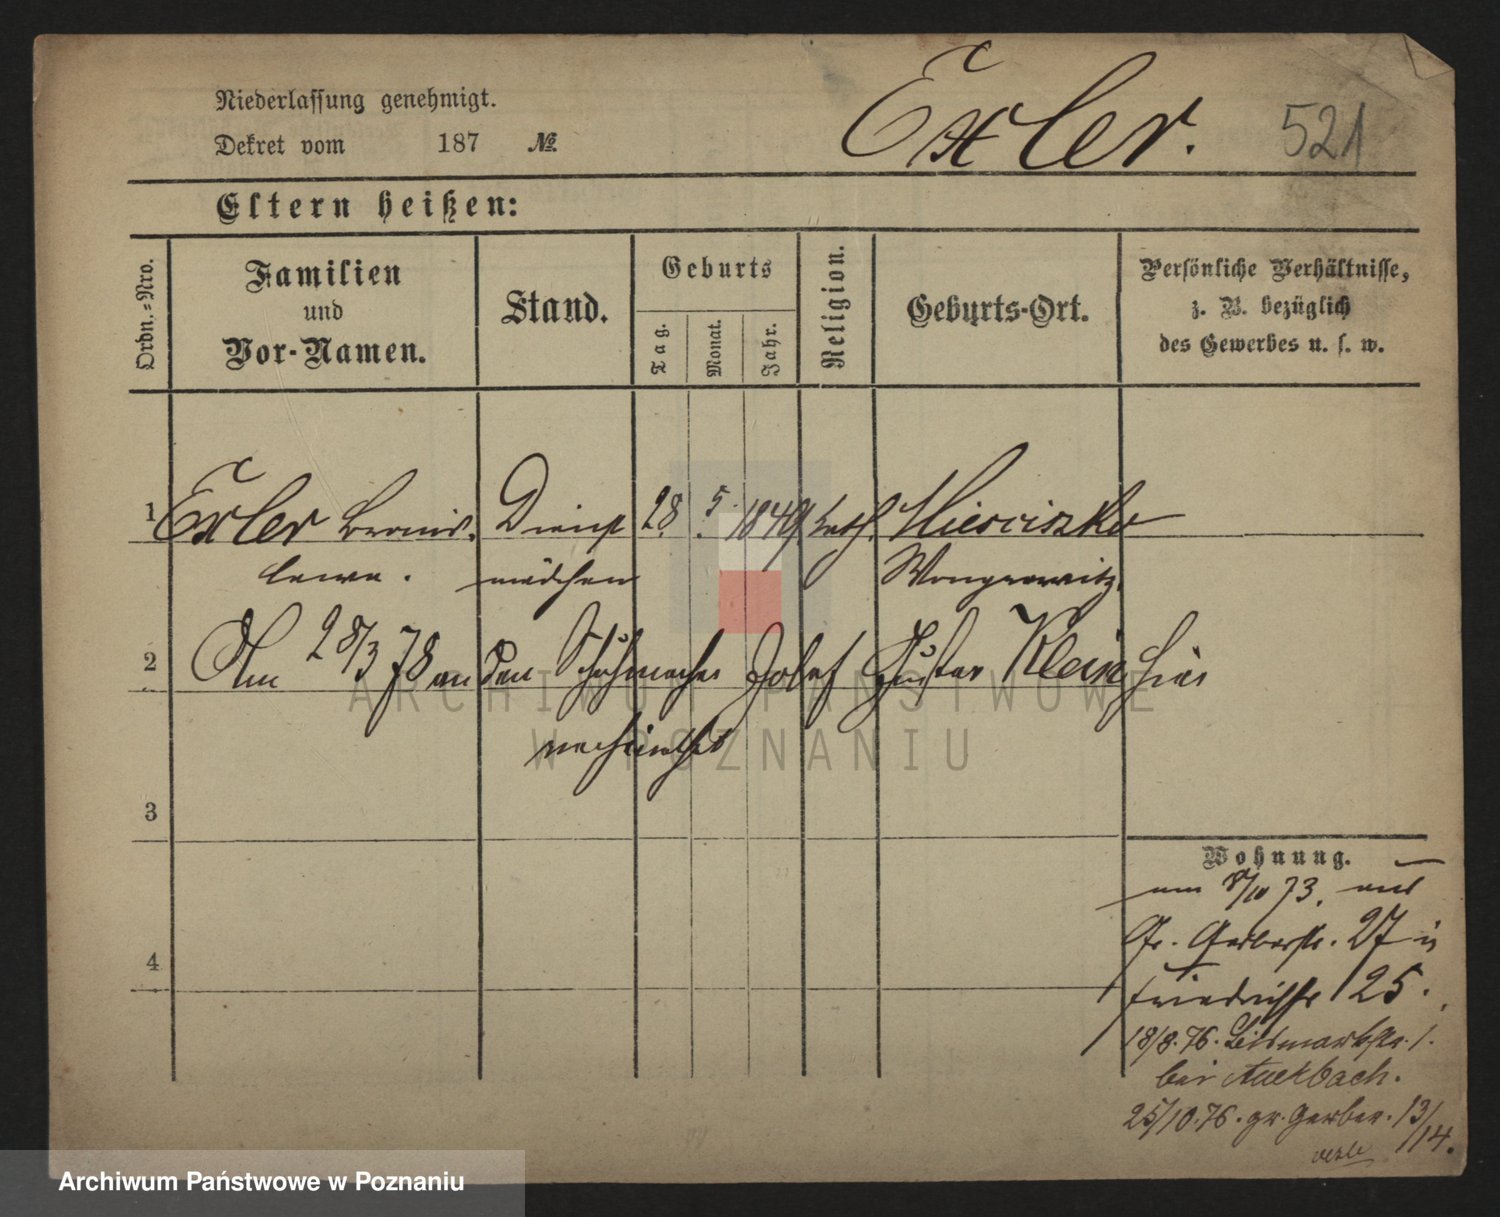 Niederlassung genehmigt.
Dekret vom 187 №
Exler.
521
Eltern heißen:
Ordn.-Nro.
Familien
und
Vor-Namen.
Stand.
Geburts
Tag.
Monat.
Jahr.
Religion.
Geburts-Ort.
Persönliche Verhältnisse,
z. B. bezüglich
des Gewerbes u. s. w.
1 Exler Bronis- Dienst 28. 5. 1849. kath. Miesciszko
lawa. mädchen Wongrowitz.
2 Am 28/3 78 an den Schuhmacher Josef Gustav Klein hier
verheirathet
3
Wohnung.
am 8/10 73. aus
Gr. Gerberstr. 27 in
Friedrichstr 25.
4
18/8. 76. Bismarckstr. 1.
bei Auerbach.
25/10. 76. gr. Gerber. 13/14.
ARCHIWUM PAŃSTWOWE
W POZNANIU
Archiwum Państwowe w Poznaniu